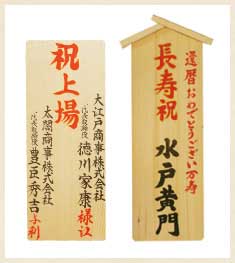 祝上場
大江戸商事株式会社
代表取締役 徳川家康様江
太閤商事株式会社
代表取締役 豊臣秀吉与利
還暦おめでとうござい万寿
長寿祝
水戸黄門